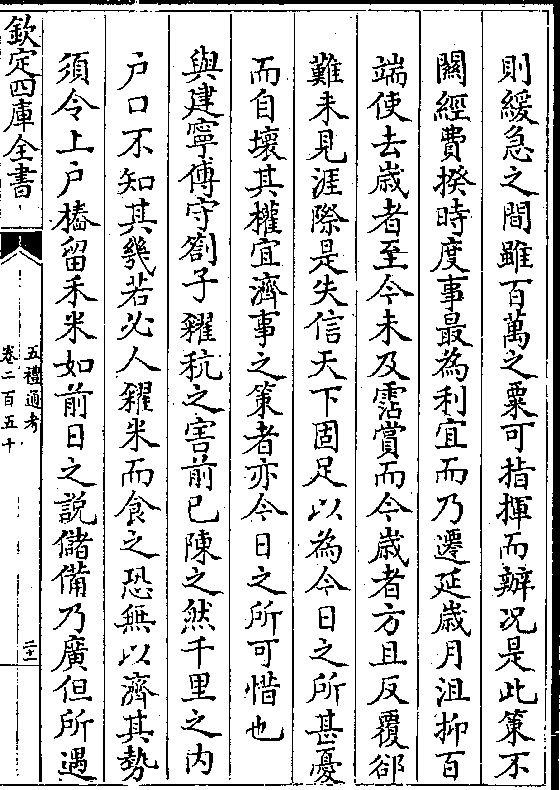 則緩急之間雖百萬之粟可指揮而辦况是此策不
闕經費揆時度事最為利宜而乃遷延歲月沮抑百
端使去歲者至今未及霑賞而今歲者方且反覆郤
難未見涯際是失信天下固足以為今日之所甚憂
而自壞其權宜濟事之策者亦今日之所可惜也
與建寧傅守劄子糴秔之害前已陳之然千里之内
户口不知其幾若必人糴米而食之恐無以濟其勢
須令上户樁留禾米如前日之說儲備乃廣但所遇
欽定四庫全書
五禮通考
卷二百五十
二十一